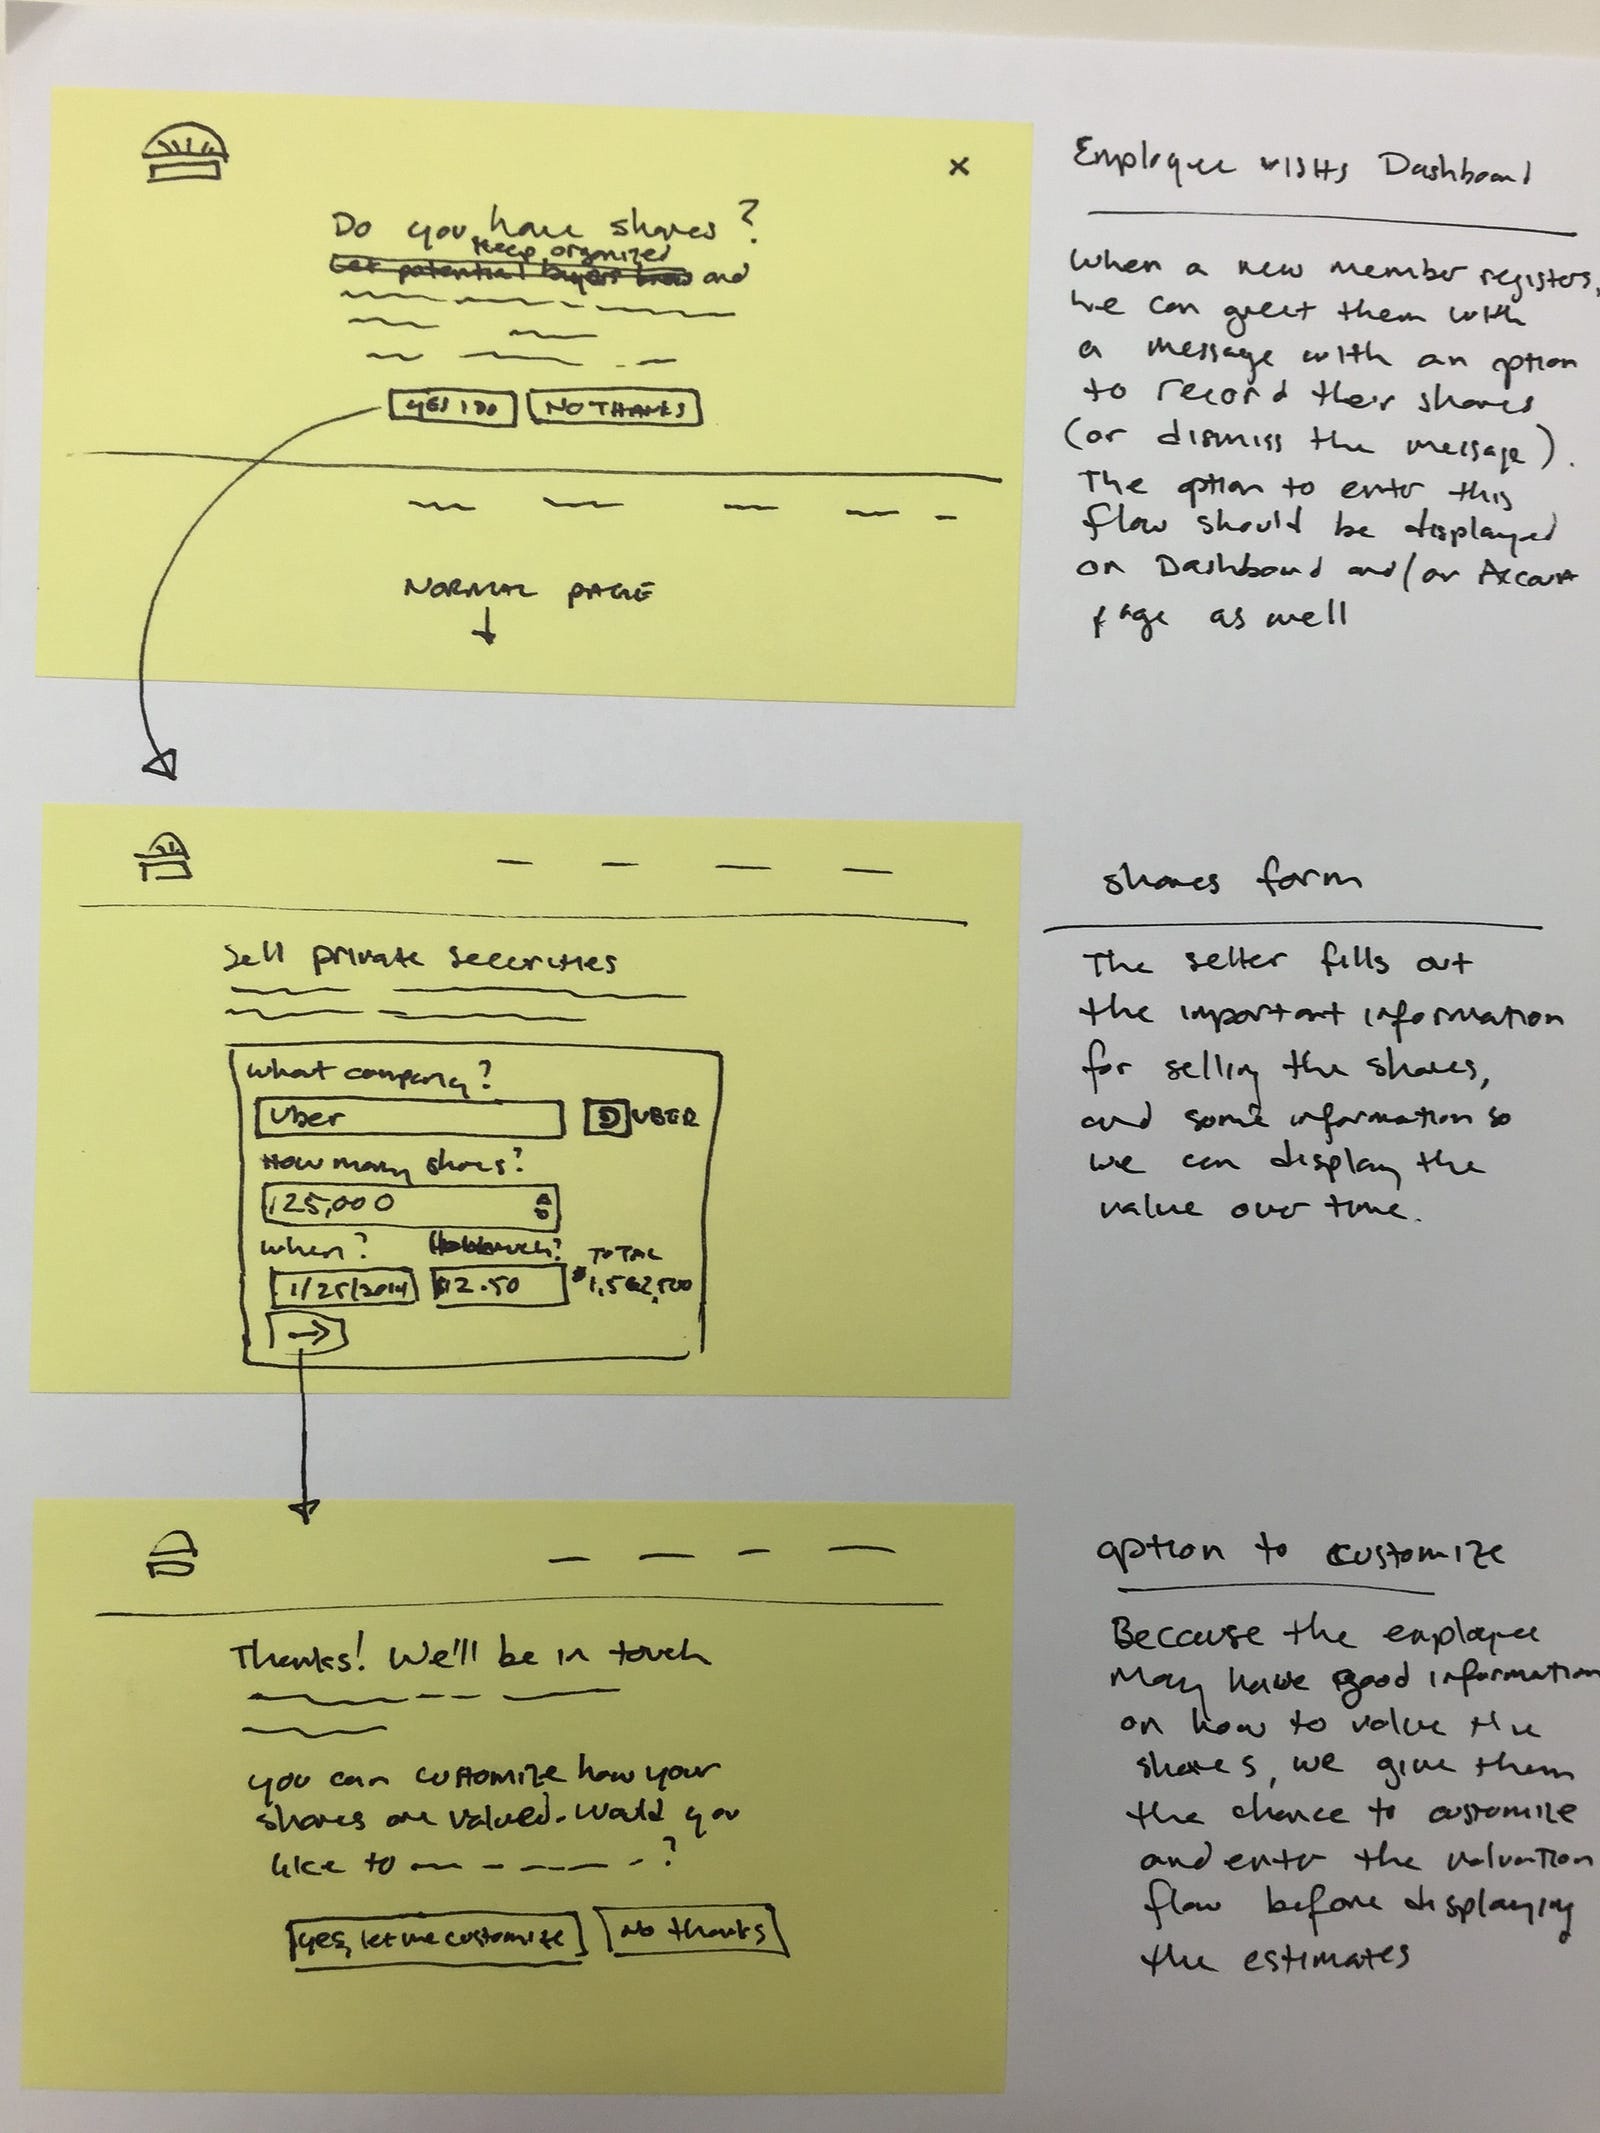 ×
Do you have shares?
Keep organized
Let potential buyers know and
YES I DO NO THANKS
NORMAL PAGE
Employee visits Dashboard
When a new member registers,
we can greet them with
a message with an option
to record their shares
(or dismiss the message).
The option to enter this
flow should be displayed
on Dashboard and/or Account
page as well
Sell private securities
What company?
Uber UBER
How many shares?
125,000
When? How much? TOTAL
1/25/2014 $12.50 $1,562,500
→
shares form
The seller fills out
the important information
for selling the shares,
and some information so
we can display the
value over time.
Thanks! We'll be in touch
you can customize how your
shares are valued. Would you
like to ?
yes, let me customize No thanks
option to customize
Because the employee
may have good information
on how to value the
shares, we give them
the chance to customize
and enter the valuation
flow before displaying
the estimates